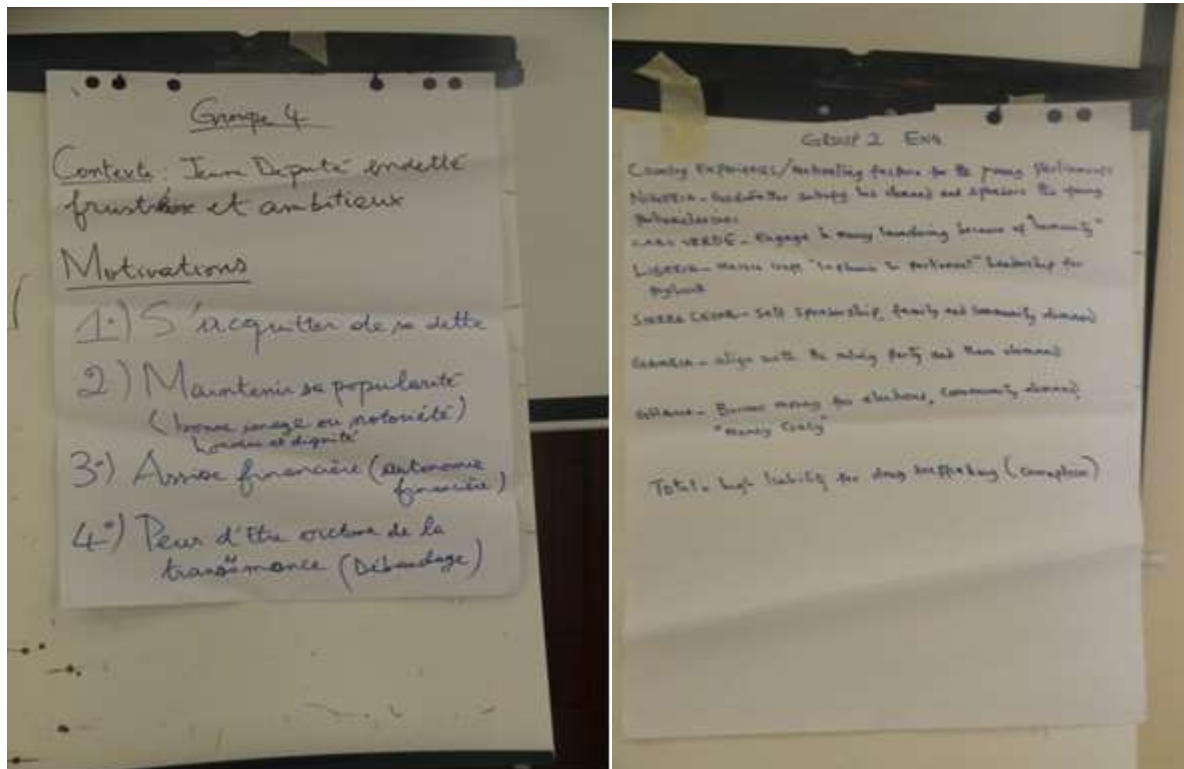 Groupe 4
Contexte : Jeune Deputé endetté
frustré et ambitieux
Motivations
1°) S'acquitter de sa dette
2) Maintenir sa popularité
(bonne image ou notoriété)
honneur et dignité
3°) Assise financière (autonomie
financière)
4°) Peur d'être victime de la
transhumance (Débandage)
GROUP 2 ENG
Country Experiences/motivating factors for the young Parliamentarians
NIGERIA - Godfather and sponsors the young
parliamentarians
CABO VERDE - Engage in money laundering because of "immunity"
LIBERIA - in parliament" leadership for
SIERRA LEONE - Self Sponsorship, family and community demand
GAMBIA - align with the ruling party and them demand
GHANA - Borrow money for elections, community demand,
"Money Crazy"
Total - high liability for drug trafficking (corruption)